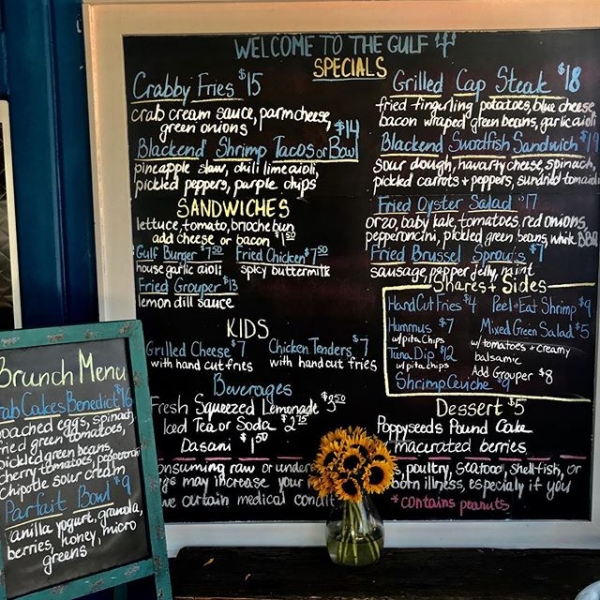 WELCOME TO THE GULF
SPECIALS
Crabby Fries $15
crab cream sauce, parm cheese,
green onions
Blackend Shrimp Tacos or Bowl $14
pineapple slaw, chili lime aioli,
pickled peppers, purple chips
SANDWICHES
lettuce, tomato, brioche bun
add cheese or bacon $1.50
Gulf Burger $7.50 Fried Chicken $7.50
house garlic aioli spicy buttermilk
Fried Grouper $13
lemon dill sauce
KIDS
Grilled Cheese $7 Chicken Tenders $7
with hand cut fries with hand cut fries
Beverages
Fresh Squeezed Lemonade $3.50
Iced Tea or Soda $2.75
Dasani $1.50
Grilled Cap Steak $18
fried fingerling potatoes, blue cheese,
bacon wraped green beans, garlic aioli
Blackend Swordfish Sandwich $19
sour dough, havarty cheese, spinach,
pickled carrots + peppers, sundried tomato
Fried Oyster Salad $17
orzo, baby kale, tomatoes, red onions,
pepperoncini, pickled green beans, white BBQ
Fried Brussel Sprouts $7
sausage, pepper jelly, mint
Shares + Sides
Hand Cut Fries $4 Peel + Eat Shrimp $9
Hummus $7 Mixed Green Salad $5
w/ pita chips w/ tomatoes + creamy
Tuna Dip $12 balsamic
w/ pita chips Add Grouper $8
Shrimp Ceviche $9
Dessert $5
Poppyseeds Pound Cake
macurated berries
onsuming raw or under s, poultry, seafood, shellfish, or
gs may increase your born illness, especialy if you
ve certain medical condit
*contains peanuts
Brunch Menu
rab Cakes Benedict $16
poached eggs, spinach,
fried green tomatoes,
pickled green beans,
cherry tomatoes,
chipotle sour cream
Parfait Bowl $9
anilla yogurt, granola,
berries, honey, micro
greens